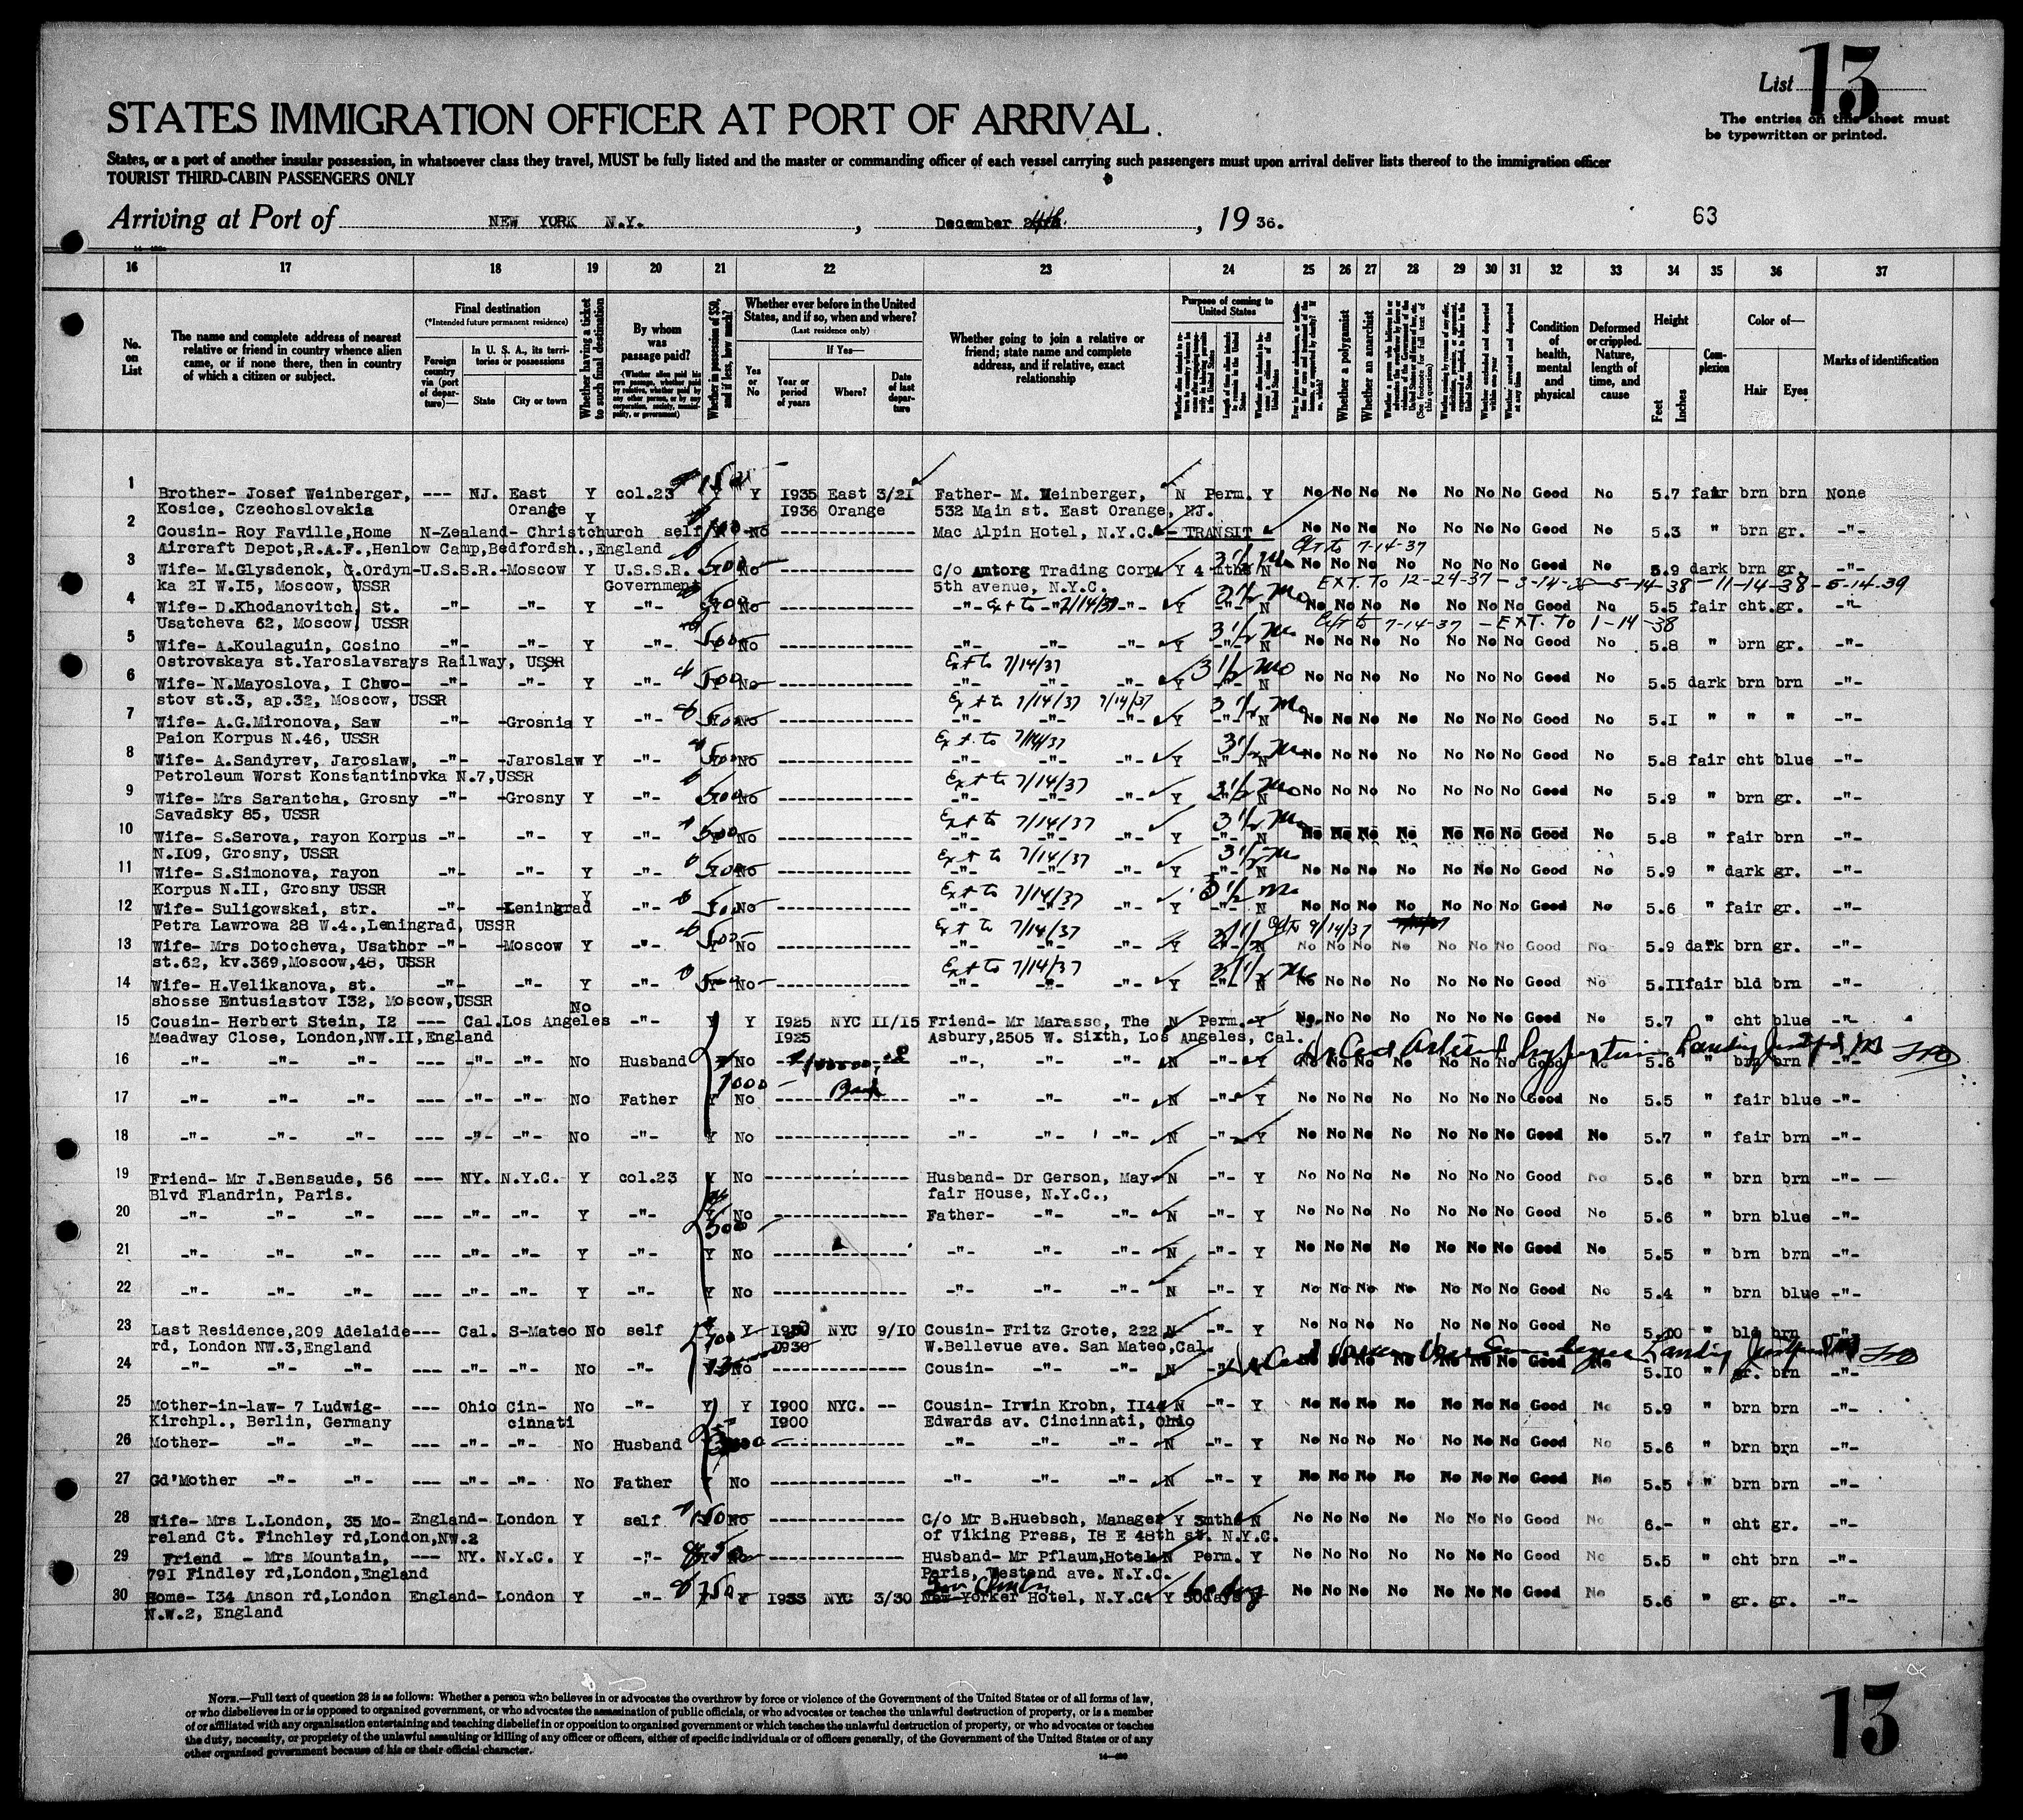 List 13
STATES IMMIGRATION OFFICER AT PORT OF ARRIVAL
The entries on this sheet must
be typewritten or printed.
States, or a port of another insular possession, in whatsoever class they travel, MUST be fully listed and the master or commanding officer of each vessel carrying such passengers must upon arrival deliver lists thereof to the immigration officer
TOURIST THIRD-CABIN PASSENGERS ONLY
Arriving at Port of NEW YORK N.Y. , December , 19 36. 63
16 17 18 19 20 21 22 23 24 25 26 27 28 29 30 31 32 33 34 35 36 37
No. on List
The name and complete address of nearest relative or friend in country whence alien came, or if none there, then in country of which a citizen or subject.
Final destination
(*Intended future permanent residence)
Foreign country via (port of departure)—
In U. S. A., its territories or possessions
State City or town
Whether having a ticket to such final destination
By whom was passage paid?
Whether in possession of $50, and if less, how much?
Whether ever before in the United States, and if so, when and where?
(Last residence only)
Yes or No
If Yes—
Year or period of years
Where?
Date of last departure
Whether going to join a relative or friend; state name and complete address, and if relative, exact relationship
Purpose of coming to United States
Whether a polygamist
Whether an anarchist
Condition of health, mental and physical
Deformed or crippled. Nature, length of time, and cause
Height
Feet Inches
Complexion
Color of—
Hair Eyes
Marks of identification
1 Brother- Josef Weinberger, --- NJ. East Y col.23 150 Y 1935 East 3/21 Father- M. Weinberger, N Perm. Y No No No No No No No Good No 5.7 fair brn brn None
Kosice, Czechoslovakia Orange 1936 Orange 532 Main st. East Orange, NJ.
2 Cousin- Roy Faville,Home N-Zealand- Christchurch Y self No Mac Alpin Hotel, N.Y.C. - TRANSIT No No No No No No No Good No 5.3 " brn gr. -"-
Aircraft Depot,R.A.F.,Henlow Camp,Bedfordsh.,England
3 Wife- M.Glysdenok, G.Ordyn- U.S.S.R.-Moscow Y U.S.S.R. 500 No C/o Amtorg Trading Corp. Y 4 mths N No No No No No No No Good No 5.9 dark brn gr. -"-
ka 21 W.15, Moscow, USSR Government 5th avenue, N.Y.C. EXT. TO 12-24-37 - 3-14-38 - 5-14-38 - 11-14-38 - 5-14-39
4 Wife- D.Khodanovitch, St. -"- -"- Y -"- 500 No -"- Ext to 7/14/37 -"- Y -"- N No No No No No No No Good No 5.5 fair cht.gr. -"-
Usatcheva 62, Moscow, USSR 7-14-37 - EXT. TO 1-14-38
5 Wife- A.Koulaguin, Cosino -"- -"- Y -"- 500 No -"- -"- -"- Y 3 1/2 mo N No No No No No No No Good No 5.8 " brn gr. -"-
Ostrovskaya st.Yaroslavsrays Railway, USSR Ext to 7/14/37
6 Wife- N.Mayoslova, I Chwo- -"- -"- Y -"- 500 No -"- -"- -"- Y 3 1/2 mo N No No No No No No No Good No 5.5 dark brn brn -"-
stov st.3, ap.32, Moscow, USSR Ext to 7/14/37 9/14/37
7 Wife- A.G.Mironova, Saw -"- -Grosnia Y -"- 500 No -"- -"- -"- Y -"- N No No No No No No No Good No 5.1 " " " -"-
Paion Korpus N.46, USSR Ext. to 7/14/37
8 Wife- A.Sandyrev, Jaroslaw, -"- -Jaroslaw Y -"- 500 No -"- -"- -"- Y 3 1/2 mo N No No No No No No No Good No 5.8 fair cht blue -"-
Petroleum Worst Konstantinovka N.7,USSR Ext to 7/14/37
9 Wife- Mrs Sarantcha, Grosny -"- -Grosny Y -"- 500 No -"- -"- -"- Y 3 1/2 mo N No No No No No No No Good No 5.9 " brn gr. -"-
Savadsky 85, USSR Ext to 7/14/37
10 Wife- S.Serova, rayon Korpus -"- -"- Y -"- 500 No -"- -"- -"- Y 3 1/2 mo N No No No No No No No Good No 5.8 " fair brn -"-
N.109, Grosny, USSR Ext to 7/14/37
11 Wife- S.Simonova, rayon -"- -"- Y -"- 500 No -"- -"- -"- Y 3 1/2 mo N No No No No No No No Good No 5.9 " dark gr. -"-
Korpus N.II, Grosny USSR Ext to 7/14/37
12 Wife- Suligowskai, str. -"- -Leningrad Y -"- 500 No -"- -"- -"- Y 3 1/2 mo N No No No No No No No Good No 5.6 " fair gr. -"-
Petra Lawrowa 28 W.4.,Leningrad, USSR Ext to 7/14/37 9/14/37
13 Wife- Mrs Dotocheva, Usathor -"- -Moscow Y -"- 500 No -"- -"- -"- Y N No No No No No No No Good No 5.9 dark brn gr. -"-
st.62, kv.369,Moscow,48, USSR Ext to 7/14/37
14 Wife- H.Velikanova, st. -"- -"- Y -"- No -"- -"- -"- Y 3 1/2 mo N No No No No No No No Good No 5.11 fair bld brn -"-
shosse Entusiastov 132, Moscow,USSR
15 Cousin- Herbert Stein, 12 --- Cal. Los Angeles No -"- Y Y 1925 NYC 11/15 Friend- Mr Marasse, The N Perm. Y No No No No No No Good No 5.7 " cht blue -"-
Meadway Close, London,NW.11,England 1925 Asbury,2505 W. Sixth, Los Angeles, Cal.
16 -"- -"- -"- --- -"- -"- No Husband Y No -"- -"- -"- N -"- Y No No No No No No No Good No 5.6 " brn brn -"-
1000 Bank
17 -"- -"- -"- --- -"- -"- No Father Y No -"- -"- -"- N -"- Y No No No No No No No Good No 5.5 " fair blue -"-
18 -"- -"- -"- --- -"- -"- No -"- Y No -"- -"- -"- N -"- Y No No No No No No No Good No 5.7 " fair brn -"-
19 Friend- Mr J.Bensaude, 56 --- NY. N.Y.C. Y col.23 Y No Husband- Dr Gerson, May- N -"- Y No No No No No No No Good No 5.6 " brn brn -"-
Blvd Flandrin, Paris. fair House, N.Y.C.,
20 -"- -"- -"- --- -"- -"- Y -"- Y No Father- -"- -"- N -"- Y No No No No No No No Good No 5.6 " brn blue -"-
500
21 -"- -"- -"- --- -"- -"- Y -"- Y No -"- -"- -"- N -"- Y No No No No No No No Good No 5.5 " brn brn -"-
22 -"- -"- -"- --- -"- -"- Y -"- Y No -"- -"- -"- N -"- Y No No No No No No No Good No 5.4 " brn blue -"-
23 Last Residence,209 Adelaide --- Cal. S-Mateo No self Y 1930 NYC 9/10 Cousin- Fritz Grote, 222 N -"- Y No No No No No No No Good No 5.10 " bld brn -"-
rd, London NW.3,England 700 1930 W.Bellevue ave. San Mateo,Cal.
24 -"- -"- -"- --- -"- -"- No -"- No Cousin- -"- -"- N -"- No No No No No No No Good No 5.10 " gr. brn -"-
25 Mother-in-law- 7 Ludwig- --- Ohio Cin- No -"- Y Y 1900 NYC. -- Cousin- Irwin Krobn, 1144 N -"- Y No No No No No No No Good No 5.9 " brn brn -"-
Kirchpl., Berlin, Germany cinnati 1900 Edwards av. Cincinnati, Ohio
26 Mother- -"- -"- --- -"- -"- No Husband -"- -"- -"- N -"- Y No No No No No No No Good No 5.6 " brn brn -"-
27 Gd'Mother -"- -"- --- -"- -"- No Father Y No -"- -"- -"- N -"- Y No No No No No No No Good No 5.5 " brn brn -"-
28 Wife- Mrs L.London, 35 Mo- England- London Y self 150 No C/o Mr B.Huebsch, Manager Y 3mths N No No No No No No No Good No 6.- " cht gr. -"-
reland Ct. Finchley rd,London,NW.2 of Viking Press, 18 E 48th st. N.Y.C.
29 Friend - Mrs Mountain, --- NY. N.Y.C. Y -"- 50 No Husband- Mr Pflaum,Hotel N Perm. Y No No No No No No No Good No 5.5 " cht brn -"-
791 Findley rd,London,England Paris, Westend ave. N.Y.C.
30 Home- 134 Anson rd,London England- London Y -"- 150 Y 1933 NYC 3/30 New-Yorker Hotel, N.Y.C. Y No No No No No No No Good No 5.6 " gr. gr. -"-
N.W.2, England
NOTE.—Full text of question 28 is as follows: Whether a person who believes in or advocates the overthrow by force or violence of the Government of the United States or of all forms of law,
or who disbelieves in or is opposed to organized government, or who advocates the assassination of public officials, or who advocates or teaches the unlawful destruction of property, or is a member
of or affiliated with any organisation entertaining and teaching disbelief in or opposition to organized government or which teaches the unlawful destruction of property, or who advocates or teaches
the duty, necessity, or propriety of the unlawful assaulting or killing of any officer or officers, either of specific individuals or of officers generally, of the Government of the United States or of any
other organized government because of his or their official character.
13